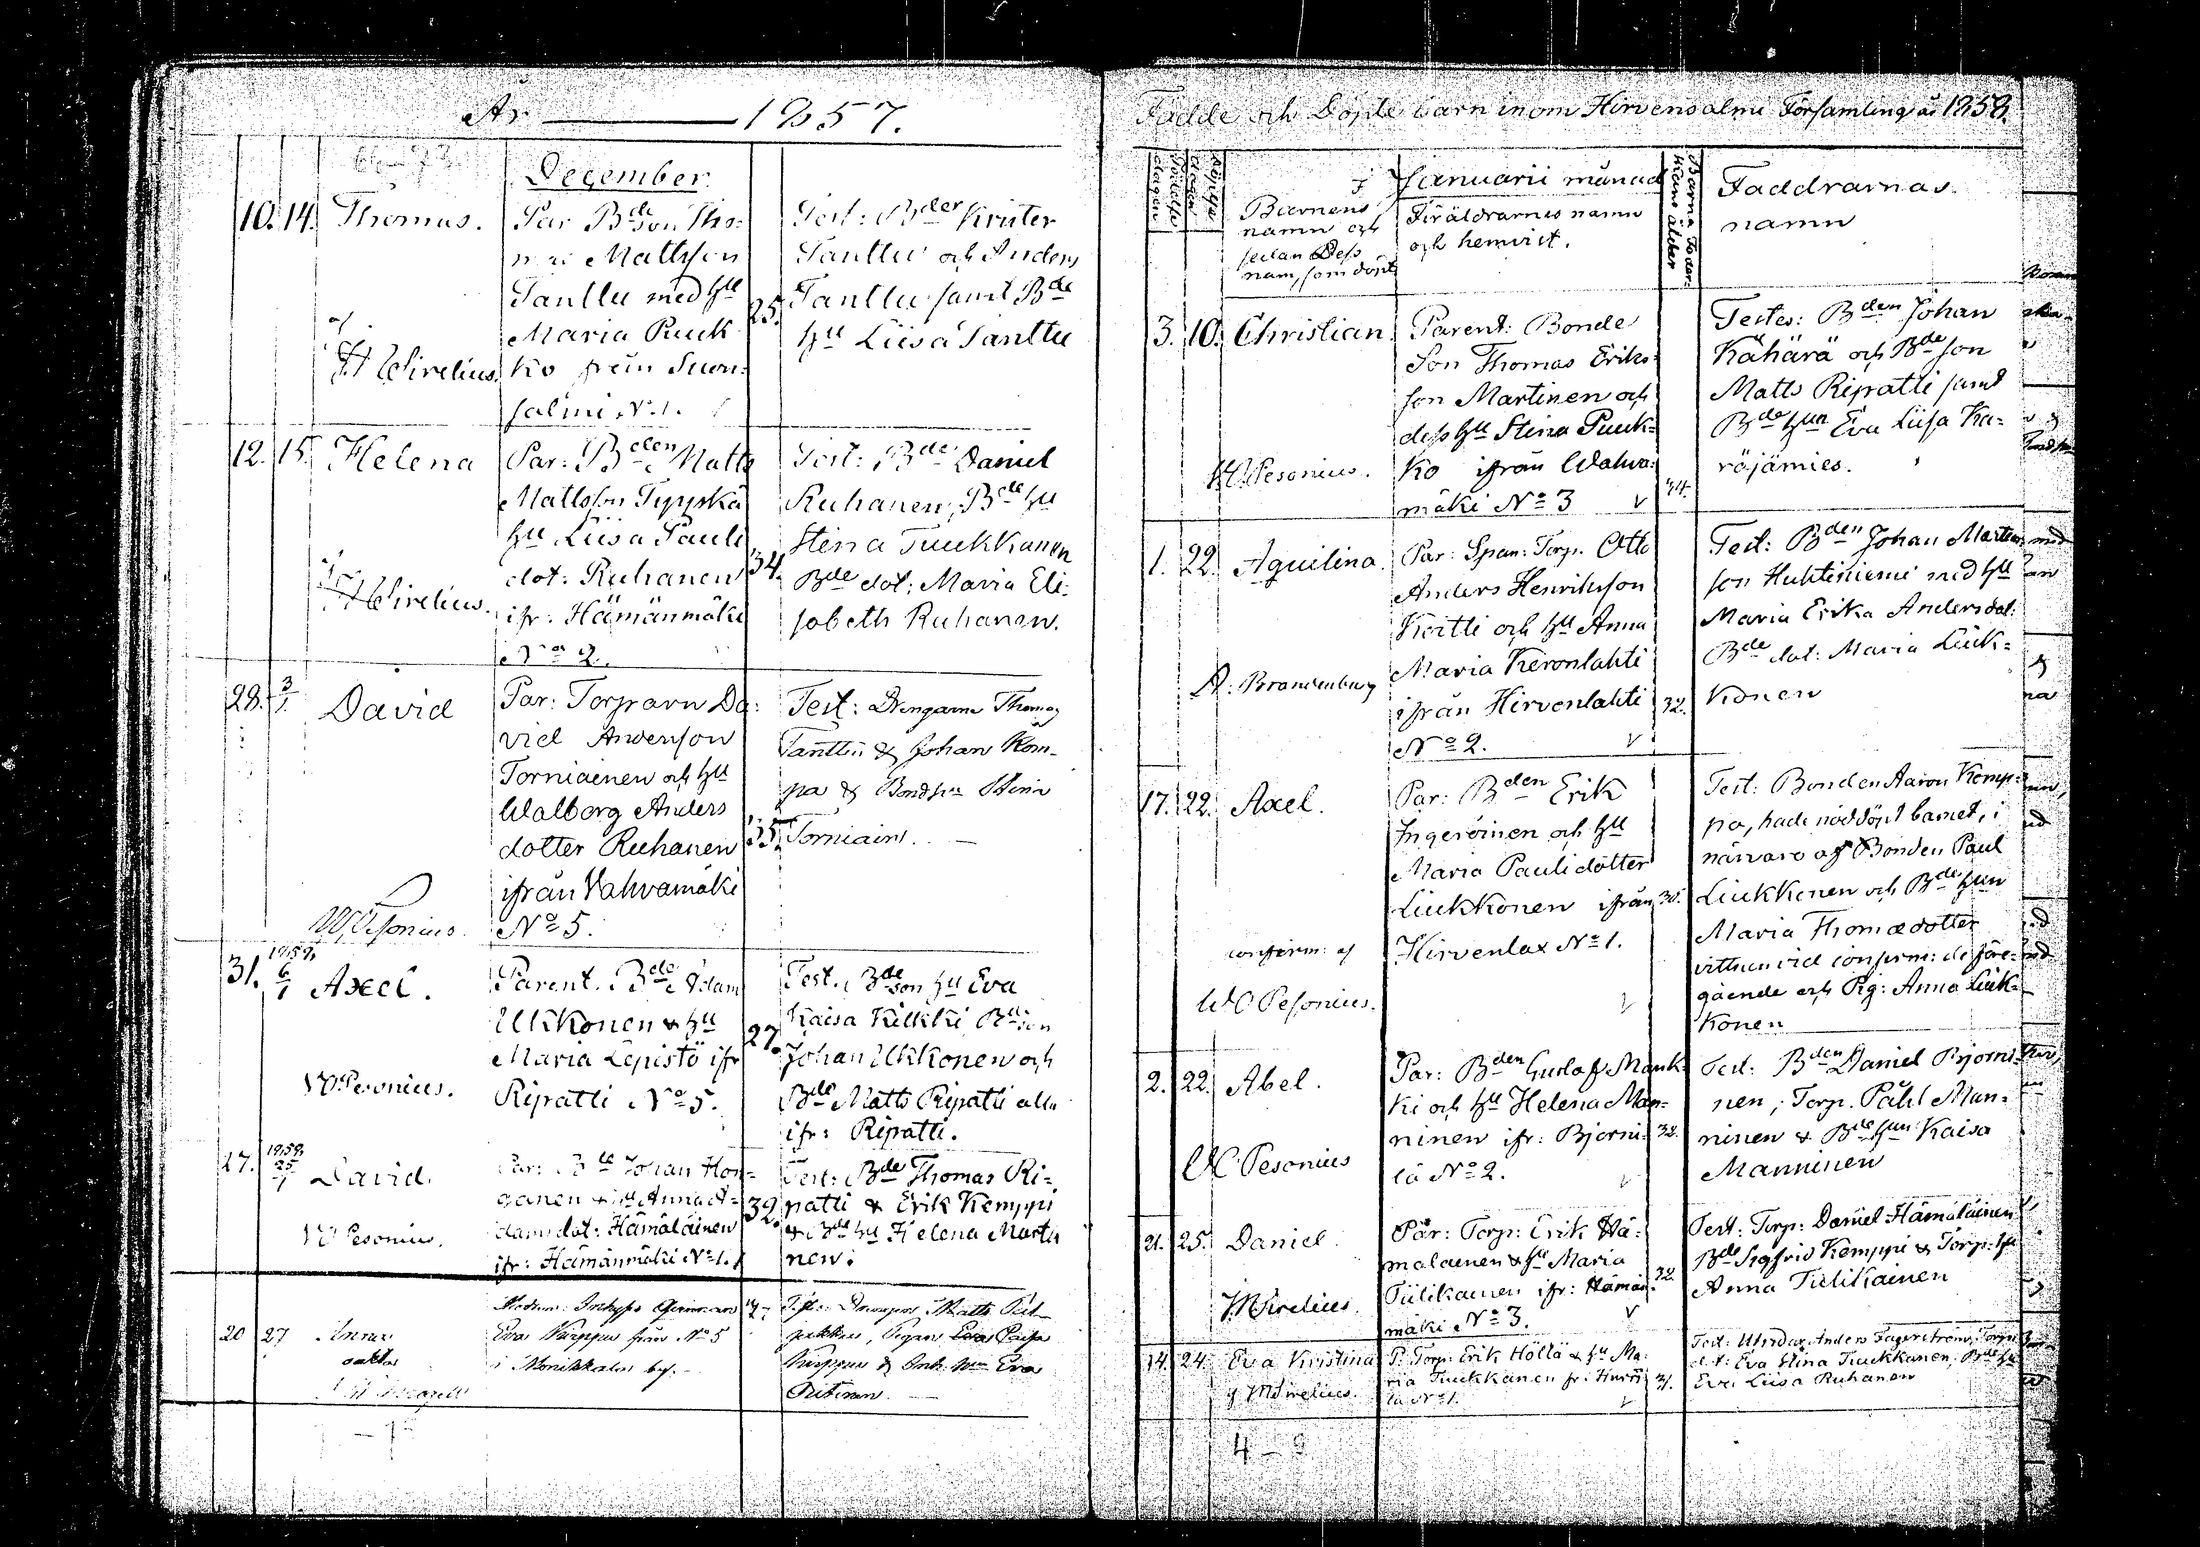 År 1857.
December
10. 14. Thomas. Par Bde son Tho-
mas Mattsson
Tanttu med hu
Maria Puuk
ko från Suon-
salmi No 1.
25.
Test: Bder Krister
Tanttu och Anders
Tanttu samt Bde
hu Liisa Tanttu
af
H Wirelius
12. 15. Helena
Par: Bden Matts
Mattsson Typpskä
hu Liisa Pauli
dot: Ruhanen
ifr: Hämänmäki
No 2.
34.
Test: Bde Daniel
Ruhanen, Bde hu
Stina Tuukkanen
Bde dot: Maria Eli-
sabeth Ruhanen.
H Wirelius.
28. 3/1 David
Par: Torparn Da-
vid Anderson
Torniainen och hu
Walborg Anders
dotter Ruhanen
ifrån Vahvamäki
No 5.
35.
Test: Drengarne Thomas
Tanttu & Johan Kom-
pa & Bondhu Stina
Torniain.
W Pesonius.
31. 1858 6/1 Axel.
Parent. Bde Adam
Ukkonen & hu
Maria Lepistö ifr
Ripatti No 5.
27.
Test. Bde son hu Eva
Kaisa Kilkki Bde son
Johan Ukkonen och
Bde Matts Ripatti alla
ifr: Ripatti.
W Pesonius.
27. 1858 25/1 David.
Par: Bde Johan Hon-
ganen & hu Anna A-
damsdot: Hämäläinen
ifr: Hämänmäki No 1.
32.
Test: Bde Thomas Ri-
patti & Erik Kemppi
& Bde hu Helena Marti
nen.
W Pesonius.
20 27 Anna
oäkta
Eva Kurppa från No 5
i Monikkala by.
Matts
Eva Kaisa
Kurppa & Inh. Eva
Födde och Döpte barn inom Hirvensalmi Församling år 1858.
i Januarii månad
Födelse dagen
Döpelse dagen
Barnens namn och
sedan Dess
namn, som döpt
Föräldrarnes namn
och hemvist.
Barna Föder-
skans ålder
Faddrarnas
namn
3. 10. Christian.
Parent: Bonde
Son Thomas Eriks-
son Martinen och
dess hu Stina Puuk-
ko ifrån Wahva-
mäki No 3
34.
Testes: Bden Johan
Kähärä och Bde son
Matts Ripatti samt
Bde hun Eva Liisa Ka-
röjämies.
W Pesonius.
1. 22. Aquilina.
Par: Span: Torp. Otto
Anders Henriksson
Kortti och hu Anna
Maria Keronlahti
ifrån Hirvenlahti
No 2.
32.
Test: Bden Johan Martens
son Huhtiniemi med hu
Maria Erika Andersdot:
Bde dot: Maria Liuk-
konen
A: Brandenburg
17. 22. Axel.
Par: Bden Erik
Ingeröinen och hu
Maria Paulidotter
Liukkonen ifrån
Hirvenlax No 1.
30.
Test: Bonden Aaron Komp-
pa, hade nöddöpt barnet, i
närvaro af Bonden Paul
Liukkonen och Bde hun
Maria Thomædotter
vittnen vid confirm: de före-
gående och Pig: Anna Liuk-
konen
confirm: af
W Pesonius.
2. 22. Abel.
Par: Bden Gustaf Mank-
ki och hu Helena Man-
ninen ifr: Björni-
lä No 2.
32.
Test: Bden Daniel Björni-
nen, Torp. Påhl Man-
ninen & Bde hun Kaisa
Manninen
W Pesonius
21. 25. Daniel
Par: Torp: Erik Hä-
mäläinen & hu Maria
Tiilikainen ifr: Hämän-
mäki No 3.
32.
Test: Torp: Daniel Hämäläinen
Bde Sigfrid Kemppi & Torp: hu
Anna Tiilikainen
H Wirelius
14. 24. Eva Kristina
P: Torp: Erik Höltä & hu Ma-
ria Tuukkanen fr: Hurri
la No 1.
31.
Test: Utridar. Anders Fagerström, Torp
dot: Eva Stina Tuukkanen, Bde hu
Eva Liisa Ruhanen
4 —